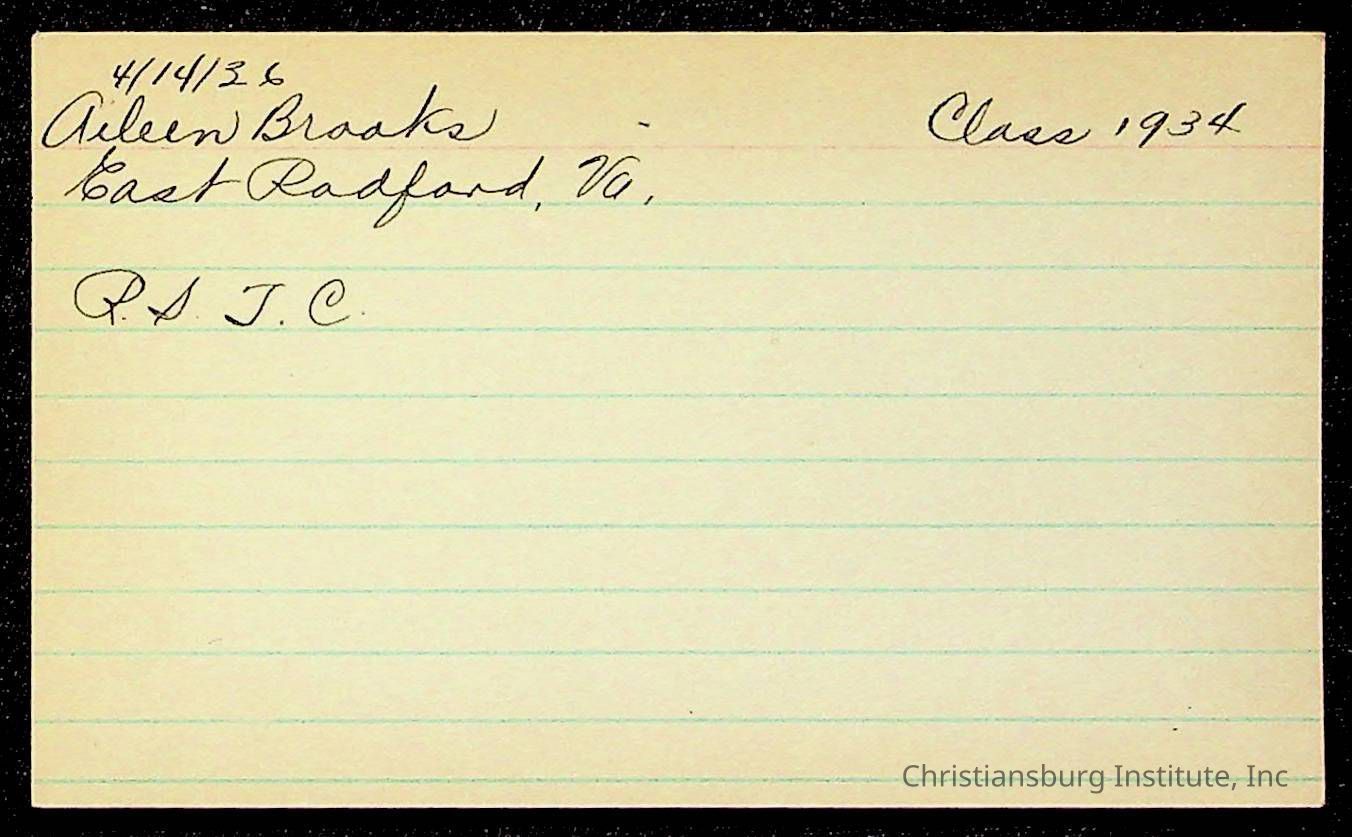 4/14/36
Aileen Brooks - Class 1934
East Radford, Va.
R. S. T. C.
Christiansburg Institute, Inc